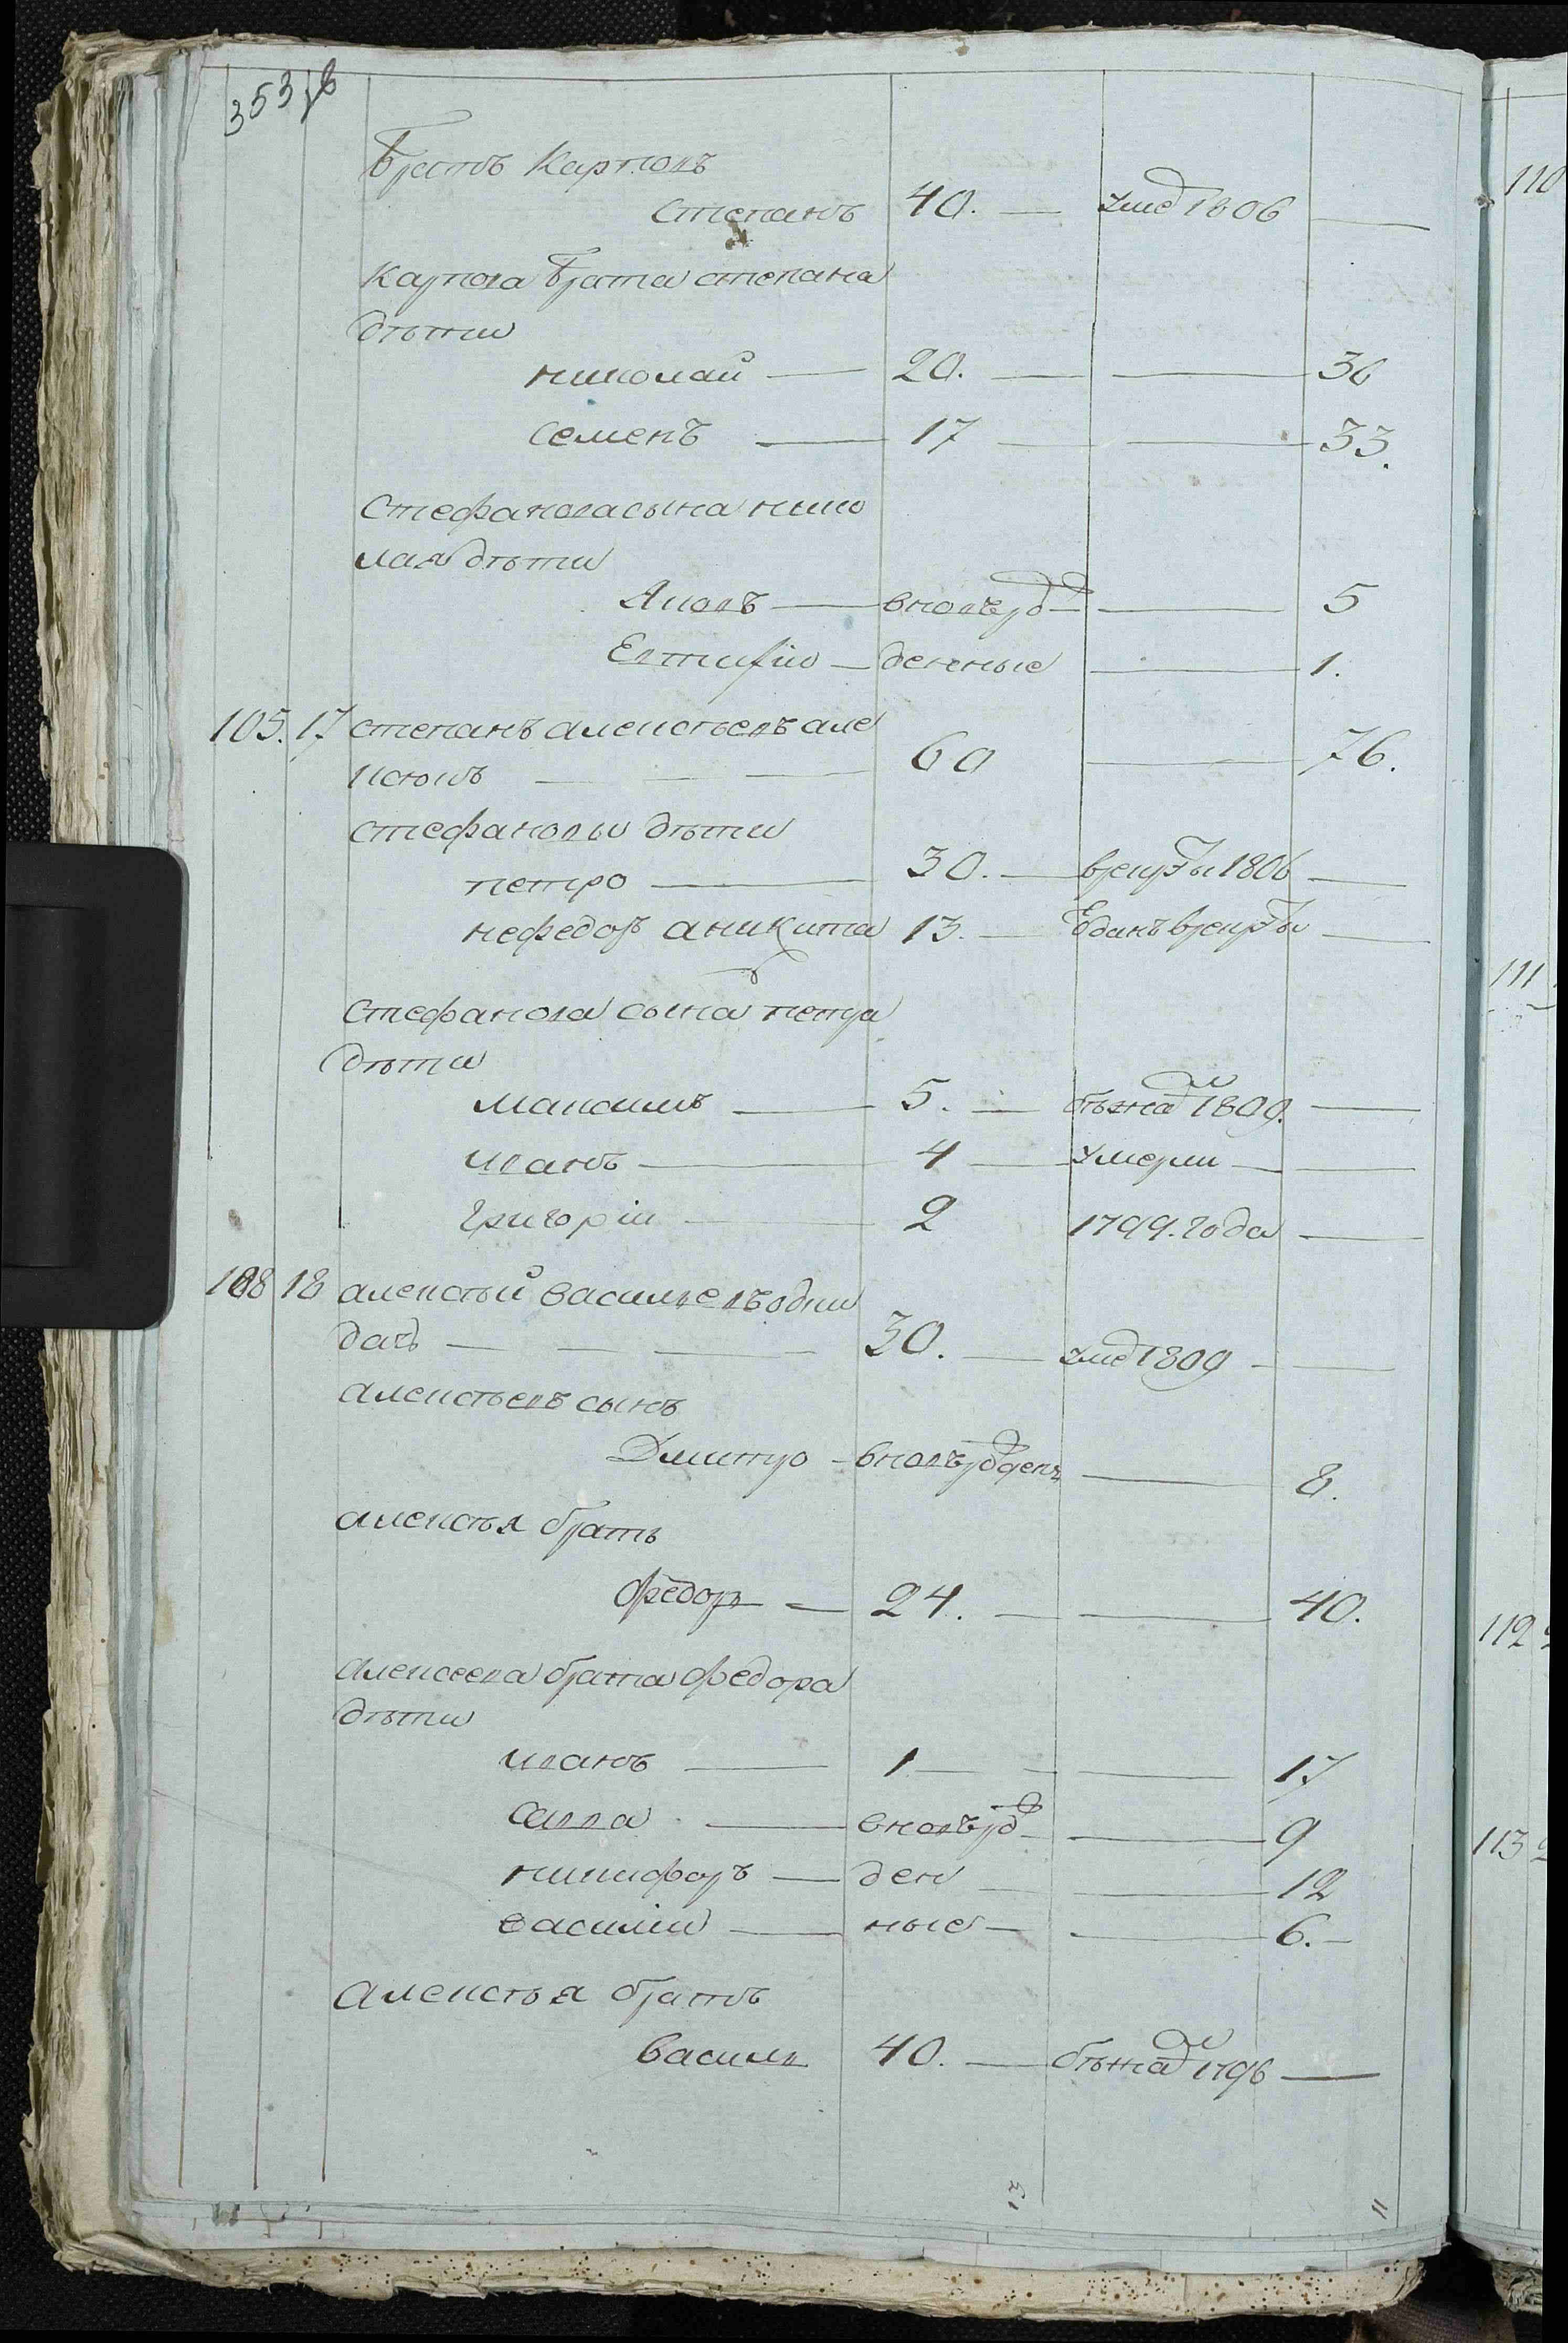 353 в
Братъ Карповъ
степанъ 40. — умеⷣ 1806 —
карпова брата степана
дѣти
николай — 20. — — 36
семенъ — 17 — — 33.
Стефанова сына нико
лая дѣти
Яковъ — вновьрож — 5
Евтифiи — денные — 1.
105. 17 степанъ алексѣевъ але
— — — 60 — 76.
стефановы дѣти
петро — 30. — врекруты 1806 —
нефедоръ аникита 13. — Едань врекруты —
Стефанова сына петра
дѣти
максимъ — 5. — бѣжаⷧ 1809. —
иванъ — 4 — умерли —
григорiи — 2 1799. года —
108 18 алексѣй васильевъ одни
дачь — — — 30. — умеⷣ 1809 —
алексѣевъ сынъ
Дмитро — вноворожден — 8.
алексѣя братъ
федоръ — 24. — — 40.
алексеева брата федора
дѣти
иванъ — 1 — — 17
савва — вноворож — 9
никифоръ — ден — 12
василiи — ные — — 6. —
алексѣя братъ
василь 40. — бѣжаⷧ 1796 —
110
111
112
113